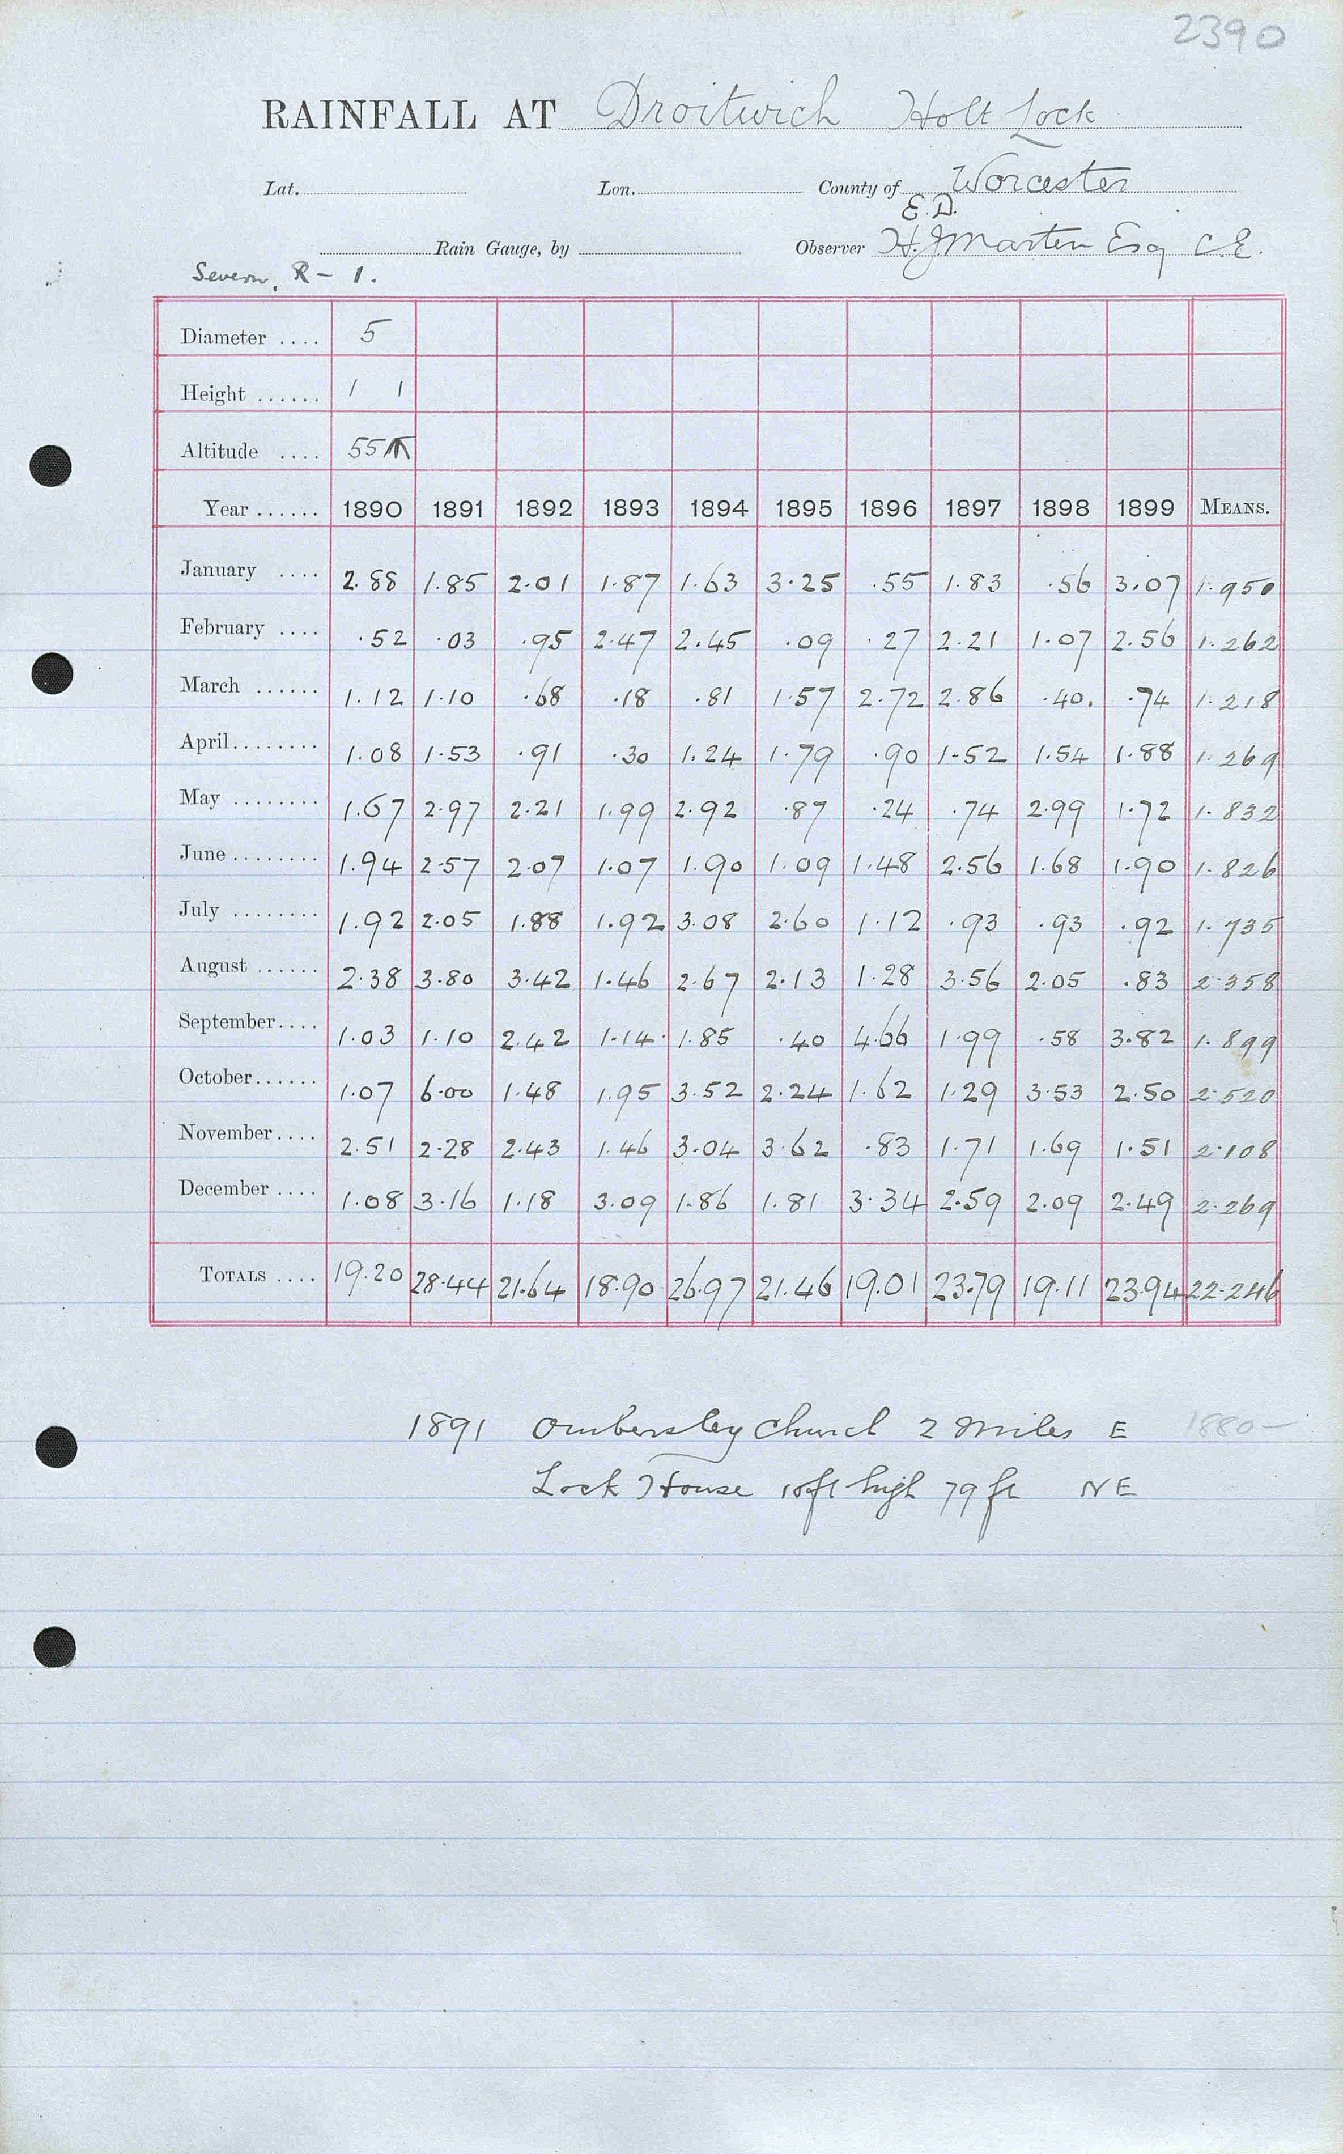 2390
RAINFALL AT Droitwich Holt Lock
Lat. Lon. County of Worcester
E.D.
Rain Gauge, by Observer H. J Marten Esq C.E.
Severn, R - 1.
Diameter .... 5
Height ...... 1 1
Altitude .... 55
Year ...... 1890 1891 1892 1893 1894 1895 1896 1897 1898 1899 MEANS.
January .... 2.88 1.85 2.01 1.87 1.63 3.25 .55 1.83 .56 3.07 1.950
February .... .52 .03 .95 2.47 2.45 .09 .27 2.21 1.07 2.56 1.262
March ...... 1.12 1.10 .68 .18 .81 1.57 2.72 2.86 .40. .74 1.218
April........ 1.08 1.53 .91 .30 1.24 1.79 .90 1.52 1.54 1.88 1.269
May ........ 1.67 2.97 2.21 1.99 2.92 .87 .24 .74 2.99 1.72 1.832
June ........ 1.94 2.57 2.07 1.07 1.90 1.09 1.48 2.56 1.68 1.90 1.826
July ........ 1.92 2.05 1.88 1.92 3.08 2.60 1.12 .93 .93 .92 1.735
August ...... 2.38 3.80 3.42 1.46 2.67 2.13 1.28 3.56 2.05 .83 2.358
September.... 1.03 1.10 2.42 1.14 1.85 .40 4.66 1.99 .58 3.82 1.899
October...... 1.07 6.00 1.48 1.95 3.52 2.24 1.62 1.29 3.53 2.50 2.520
November.... 2.51 2.28 2.43 1.46 3.04 3.62 .83 1.71 1.69 1.51 2.108
December .... 1.08 3.16 1.18 3.09 1.86 1.81 3.34 2.59 2.09 2.49 2.269
TOTALS .... 19.20 28.44 21.64 18.90 26.97 21.46 19.01 23.79 19.11 23.94 22.246
1891 Ombersley Church 2 Miles E 1880-
Lock House 10ft high 79 ft NE